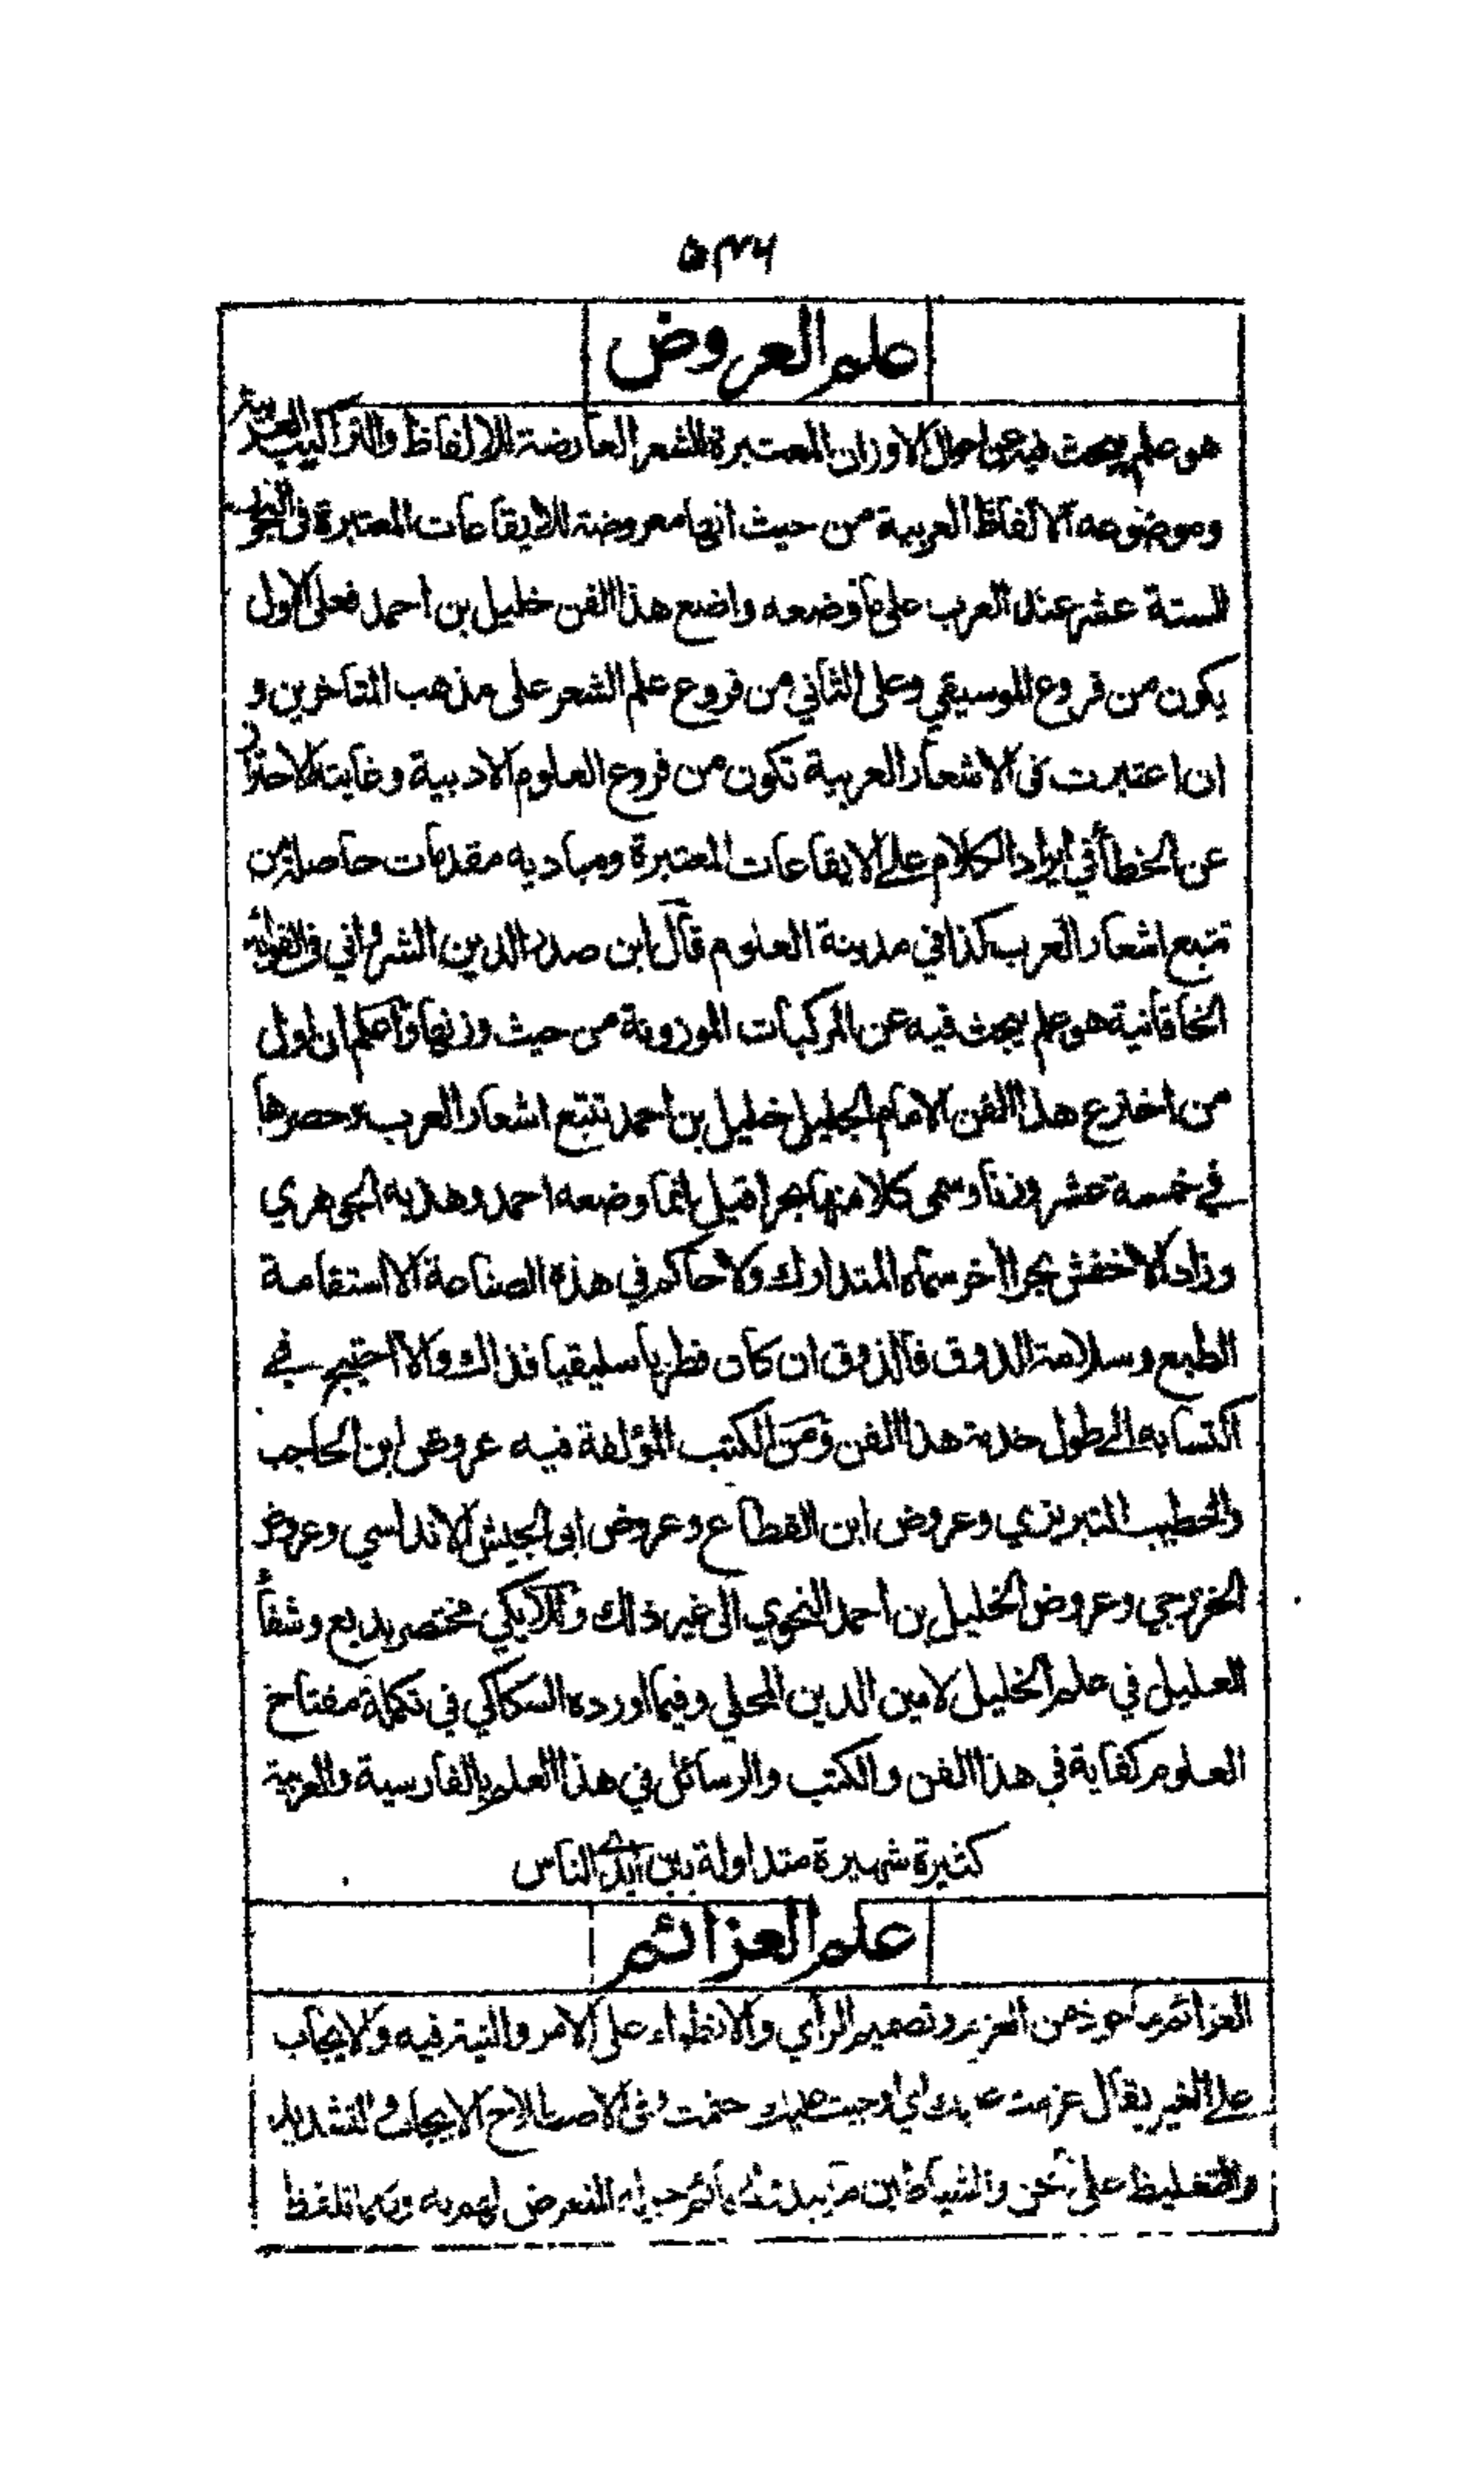 ۵۳۶
علم العروض
هو علم يبحث فيه عن احوال الاوزان المعتبرة للشعر العارضة للالفاظ والتراكيب العربية
وموضوعه الالفاظ العربية من حيث انها معروضة للايقاعات المعتبرة فى البحور
الستة عشر عند العرب على ما وضعه واضع هذا الفن خليل بن احمد فعلى الاول
يكون من فروع الموسيقي وعلى الثاني من فروع علم الشعر على مذهب المتاخرين و
ان اعتبرت فى الاشعار العربية تكون من فروع العلوم الادبية وغايته الاحتراز
عن الخطأ في ايراد الكلام على الايقاعات المعتبرة ومباديه مقدمات حاصلة من
تتبع اشعار العرب كذا في مدينة العلوم قال ابن صدر الدين الشرواني في الفوائد
الخاقانية هو علم يبحث فيه عن المركبات الموزونة من حيث وزنها واعلم ان اول
من اخترع هذا الفن الامام الجليل خليل بن احمد تتبع اشعار العرب وحصرها
في خمسة عشر وزنا وسمى كلا منها بحرا قيل انما وضعه احمد وهذبه الجوهري
وزاد الاخفش بحرا اخر سماه المتدارك ولا حاكم في هذه الصناعة الا استقامة
الطبع وسلامة الذوق فالذوق ان كان فطريا سليقيا فذالك والا احتيج في
اكتسابه الى طول خدمة هذا الفن ومن الكتب المؤلفة فيه عروض ابن الحاجب
والخطيب التبريزي وعروض ابن القطاع وعروض ابى الجيش الاندلسي وعروض
الخزرجي وعروض الخليل بن احمد النحوي الى غير ذلك وللايكي مختصر بديع وشفاء
العليل في علم الخليل لامين الدين المحلي وفيما اورده السكاكي في تكملة مفتاح
العلوم كفاية في هذا الفن والكتب والرسائل في هذا العلم بالفارسية والعربية
كثيرة شهيرة متداولة بين ايدى الناس
علم العزائم
العزائم ماخوذ من العزم وتصميم الرأي والانطواء على الامر والنية فيه والايجاب
على الغير يقال عزمت عليك اي اوجبت عليك حتمت وفى الاصطلاح الايجاب والتشديد
والتغليظ على الجن والشياطين ما يبدو للحائم حوله المتعرض لهم به وكلما تلفظ